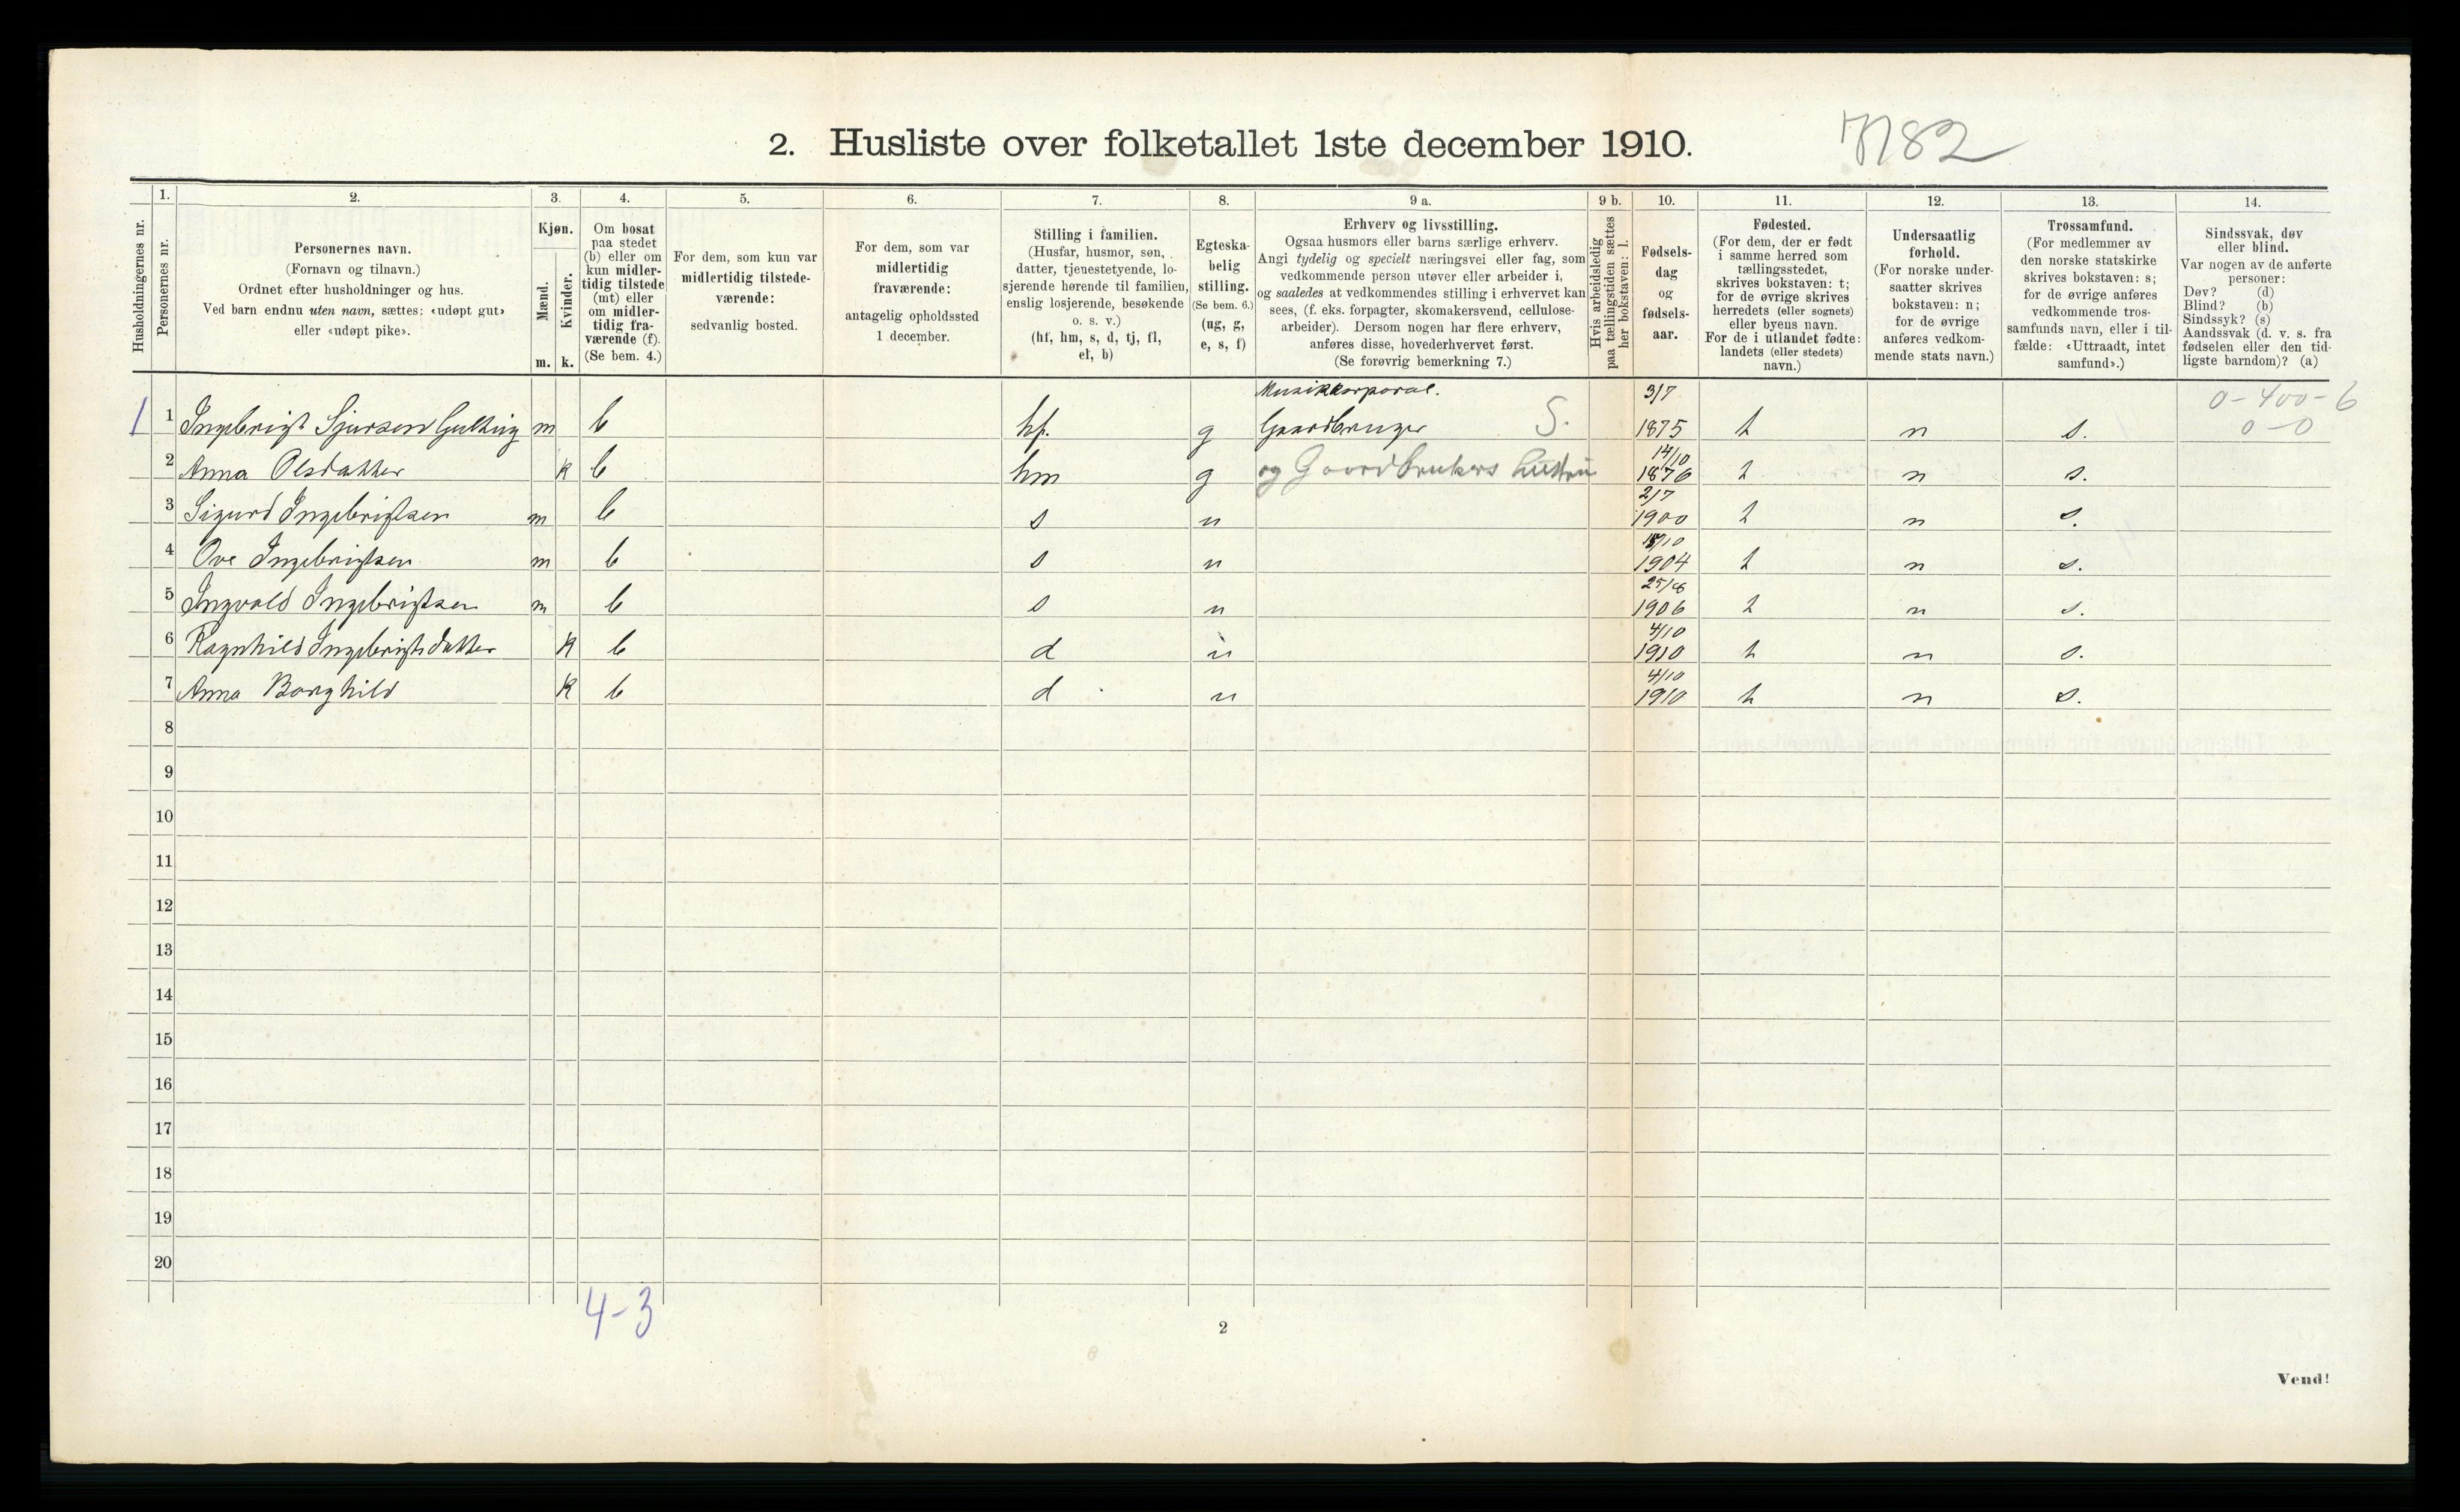 2. Husliste over folketallet 1ste december 1910.
1. 2. 3. 4. 5. 6. 7. 8. 9 a. 9 b. 10. 11. 12. 13. 14.
Husholdningernes nr.
Personernes nr.
Personernes navn.
(Fornavn og tilnavn.)
Ordnet efter husholdninger og hus.
Ved barn endnu uten navn, sættes: «udøpt gut»
eller «udøpt pike».
Kjøn.
Mænd.
m.
Kvinder.
k.
Om bosat
paa stedet
(b) eller om
kun midler-
tidig tilstede
(mt) eller
om midler-
tidig fra-
værende (f).
(Se bem. 4.)
For dem, som kun var
midlertidig tilstede-
værende:
sedvanlig bosted.
For dem, som var
midlertidig
fraværende:
antagelig opholdssted
1 december.
Stilling i familien.
(Husfar, husmor, søn,
datter, tjenestetyende, lo-
sjerende hørende til familien,
enslig losjerende, besøkende
o. s. v.)
(hf, hm, s, d, tj, fl,
el, b)
Egteska-
belig
stilling.
(Se bem. 6.)
(ug, g,
e, s, f)
Erhverv og livsstilling.
Ogsaa husmors eller barns særlige erhverv.
Angi tydelig og specielt næringsvei eller fag, som
vedkommende person utøver eller arbeider i,
og saaledes at vedkommendes stilling i erhvervet kan
sees, (f. eks. forpagter, skomakersvend, cellulose-
arbeider). Dersom nogen har flere erhverv,
anføres disse, hovederhvervet først.
(Se forøvrig bemerkning 7.)
Hvis arbeidsledig
paa tællingstiden sættes
her bokstaven: l.
Fødsels-
dag
og
fødsels-
aar.
Fødested.
(For dem, der er født
i samme herred som
tællingsstedet,
skrives bokstaven: t;
for de øvrige skrives
herredets (eller sognets)
eller byens navn.
For de i utlandet fødte:
landets (eller stedets)
navn.)
Undersaatlig
forhold.
(For norske under-
saatter skrives
bokstaven: n;
for de øvrige
anføres vedkom-
mende stats navn.)
Trossamfund.
(For medlemmer av
den norske statskirke
skrives bokstaven: s;
for de øvrige anføres
vedkommende tros-
samfunds navn, eller i til-
fælde: «Uttraadt, intet
samfund».)
Sindssvak, døv
eller blind.
Var nogen av de anførte
personer:
Døv? (d)
Blind? (b)
Sindssyk? (s)
Aandssvak (d. v. s. fra
fødselen eller den tid-
ligste barndom)? (a)
Musikkorporal. 3/7 0-400-6
1 1 Ingebrigt Sjursen m b hf. g Gaardbruger S. 1875 t n s. 0-0
14/10
2 Anna Olsdatter k b hm g og Gaardbrukers hustru 1876 t n s.
2/7
3 Sigurd Ingebrigtsen m b s u 1900 t n s.
4 Ove Ingebrigtsen m b s u 1904 t n s.
5 Ingvald Ingebrigtsen m b s u 1906 t n s.
4/10
6 Ragnhild Ingebrigtsdatter k b d u 1910 t n s.
4/10
7 Anna Borghild k b d u 1910 t n s.
8
9
10
11
12
13
14
15
16
17
18
19
20
4-3
2
Vend!